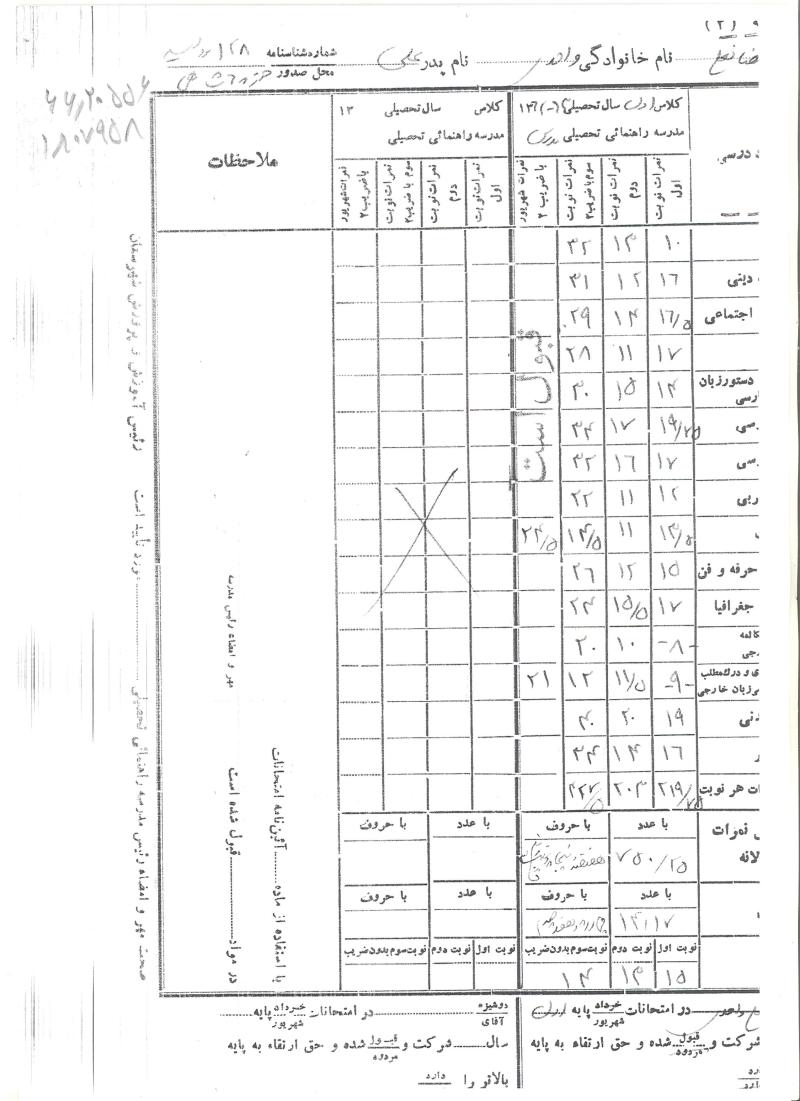 (۲)
نام خانوادگی واحدی نام پدر علی شماره شناسنامه ۱۲۸
محل صدور
۴۴٫۲۰۵۵۴
۱۸۰۷۹۵۸
درسی
کلاس اول سال تحصیلی ۱۳۶
مدرسه راهنمائی تحصیلی
کلاس سال تحصیلی ۱۳
مدرسه راهنمائی تحصیلی
ملاحظات
نمرات نوبت اول
نمرات نوبت دوم
نمرات نوبت سوم با ضریب ۲
نمرات شهریور با ضریب ۲
نمرات نوبت اول
نمرات نوبت دوم
نمرات نوبت سوم با ضریب ۲
نمرات شهریور با ضریب ۲
۱۰ ۱۳ ۳۲
دینی ۱۶ ۱۲ ۳۱
اجتماعی ۱۶/۵ ۱۴ ۲۹
۱۷ ۱۱ ۲۸
دستور زبان
رسی ۱۴ ۱۵ ۳۰
سی ۱۹/۷۵ ۱۷ ۳۴
سی ۱۷ ۱۶ ۳۲
ربی ۱۲ ۱۱ ۲۲
۱۳/۵ ۱۱ ۱۴/۵ ۲۴/۵
حرفه و فن ۱۵ ۱۲ ۲۶
جغرافیا ۱۷ ۱۵/۵ ۲۴
کالمه
رجی -۸- ۱۰ ۲۰
ی و درک مطلب
زبان خارجی -۹- ۱۱/۵ ۱۲ ۲۱
دنی ۱۹ ۲۰ ۴۰
۱۶ ۱۴ ۳۴
ات هر نوبت ۲۱۹/۷۵ ۲۰۳ ۴۲۷/۵
قبول است
نمرات
لانه
با عدد با حروف با عدد با حروف
۷۵۰/۲۵ هفتصد
با عدد با حروف با عدد با حروف
۱۴٫۱۷ چهارده و هفده صدم
نوبت اول نوبت دوم نوبت سوم بدون ضریب نوبت اول نوبت دوم نوبت سوم بدون ضریب
۱۵ ۱۳ ۱۴
واحدی در امتحانات خرداد شهریور پایه اول
شرکت و قبول مردود شده و حق ارتقاء به پایه
دارد
دوشیزه آقای در امتحانات خرداد شهریور پایه
سال شرکت و قبول مردود شده و حق ارتقاء به پایه
بالاتر را دارد
با استفاده از ماده آئین‌نامه امتحانات
در مواد قبول شده است
مهر و امضاء رئیس مدرسه
صحت مهر و امضاء رئیس مدرسه راهنمائی تحصیلی مورد تأیید است
رئیس آموزش و پرورش شهرستان